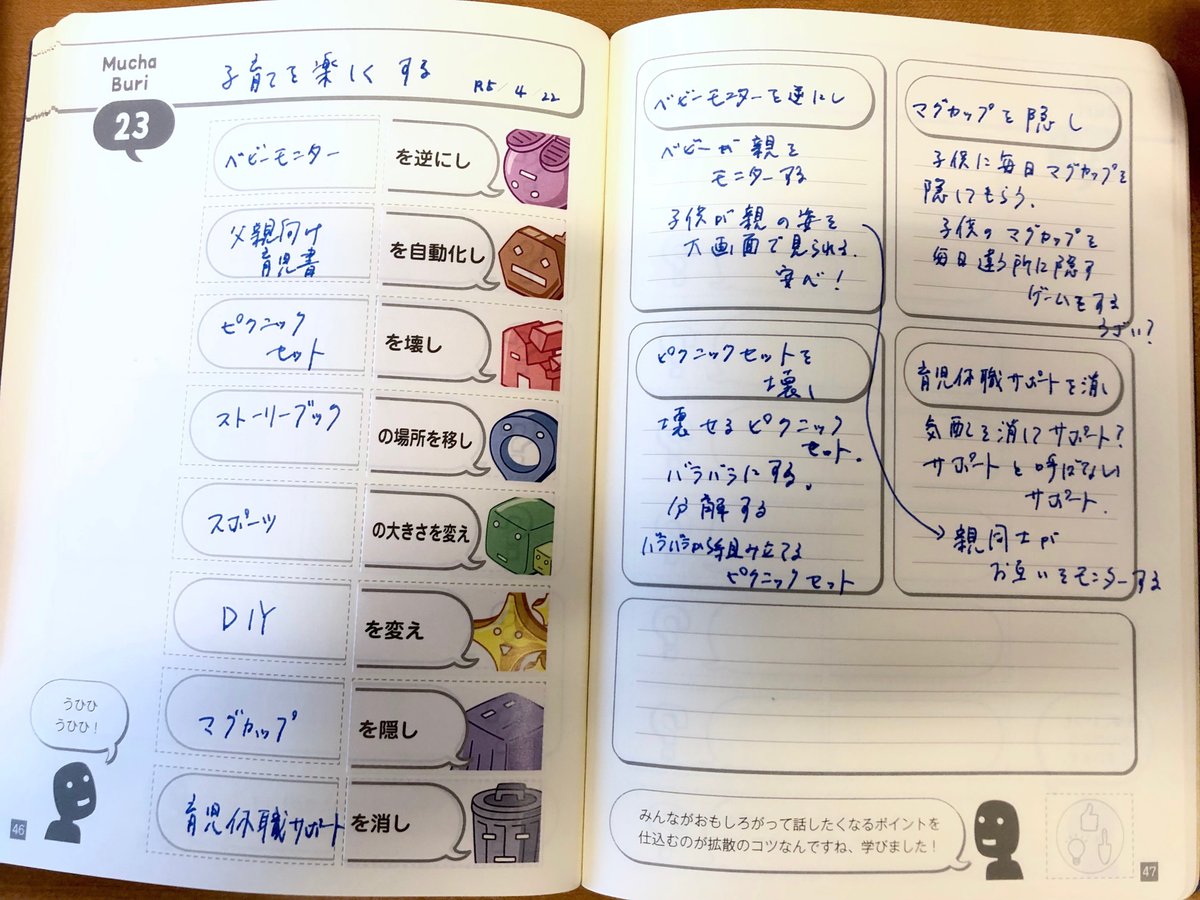 Mucha
Buri
23
子育てを楽しくする
R5/4/22
ベビーモニター
を逆にし
父親向け
育児書
を自動化し
ピクニック
セット
を壊し
ストーリーブック
の場所を移し
スポーツ
の大きさを変え
DIY
を変え
マグカップ
を隠し
育児休職サポート
を消し
うひひ
うひひ!
46
ベビーモニターを逆にし
ベビーが親を
モニターする
子供が親の姿を
大画面で見られる。
安心!
マグカップを隠し
子供に毎日マグカップを
隠してもらう。
子供のマグカップを
毎日違う所に隠す
ゲームをする
うざい?
ピクニックセットを
壊し
壊せるピクニック
セット。
バラバラにする。
分解する
バラバラから組み立てる
ピクニックセット
育児休職サポートを消し
気配を消してサポート?
サポートと呼ばない
サポート。
親同士が
お互いをモニターする
みんながおもしろがって話したくなるポイントを
仕込むのが拡散のコツなんですね、学びました!
47